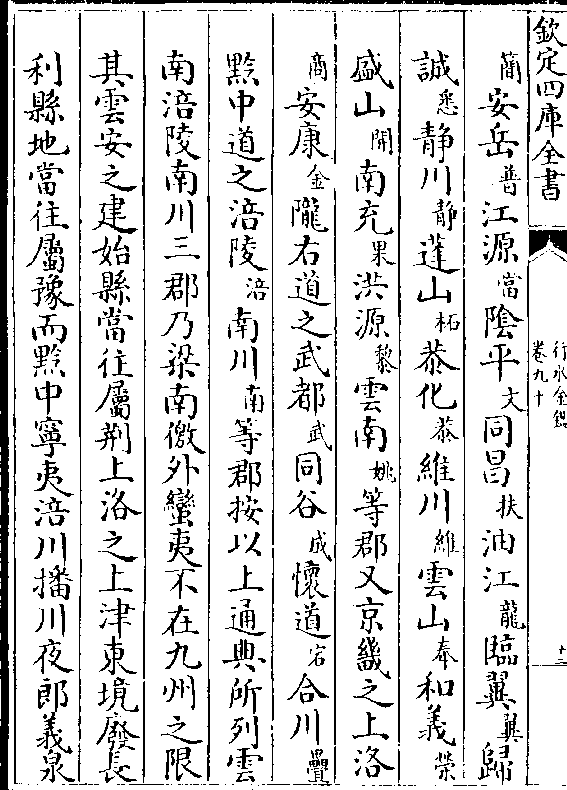 欽定四庫全書
行水金鑑
卷九十
十二
簡安岳普江源當陰平文同昌扶油江龍臨翼翼歸
誠悉靜川靜蓬山柘恭化恭維川維雲山奉和義榮
盛山開南充果洪源黎雲南姚等郡又京畿之上洛
商安康金隴右道之武都武同谷成懷道宕合川疊
黔中道之涪陵涪南川南等郡按以上通典所列雲
南涪陵南川三郡乃梁南徼外蠻夷不在九州之限
其雲安之建始縣當往屬荆上洛之上津東境廢長
利縣地當往屬豫而黔中寧夷涪川播川夜郎義泉